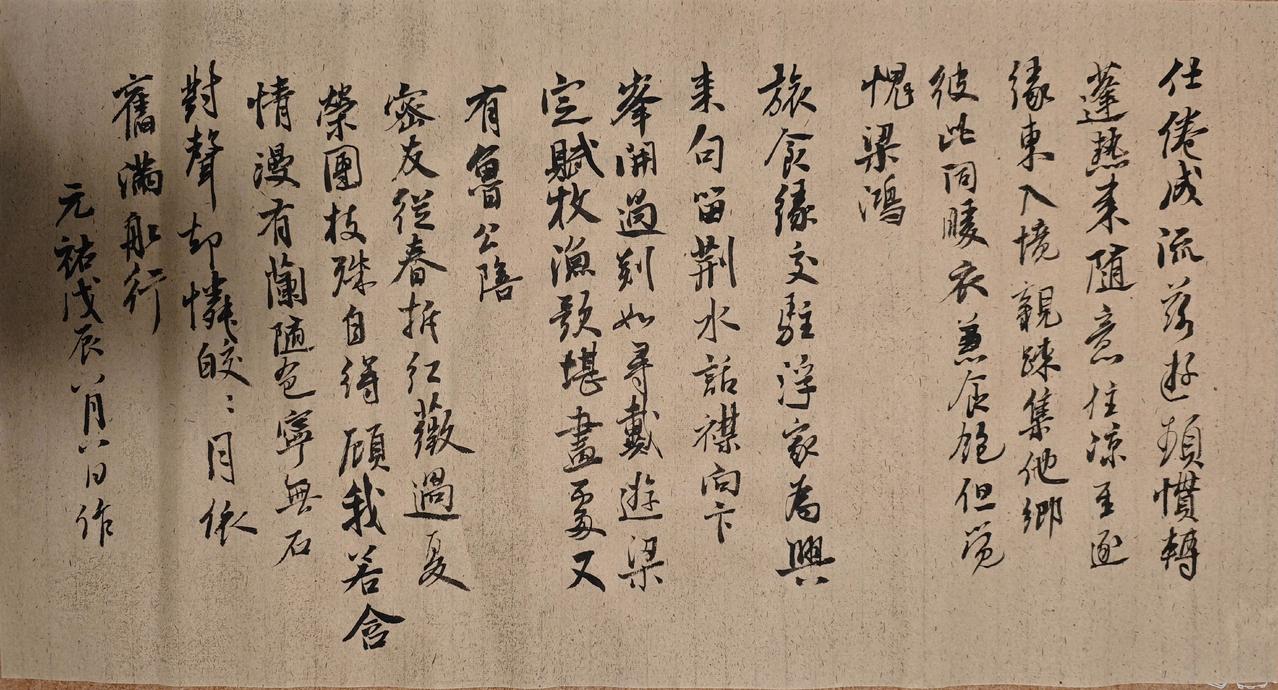 仕倦成流落遊頻慣轉
蓬熱來隨意住涼至逐
緣東入境親疎集他鄉
彼此同暖衣兼食飽但覺
愧梁鴻
旅食緣交駐浮家為興
來句留荊水話襟向卞
峯開過剡如尋戴遊梁
定賦枚漁歌堪畫處又
有魯公陪
密友從春拆紅薇過夏
榮團枝殊自得顧我若含
情漫有蘭隨色寧無石
對聲却憐皎〻月依
舊滿舡行
元祐戊辰八月八日作